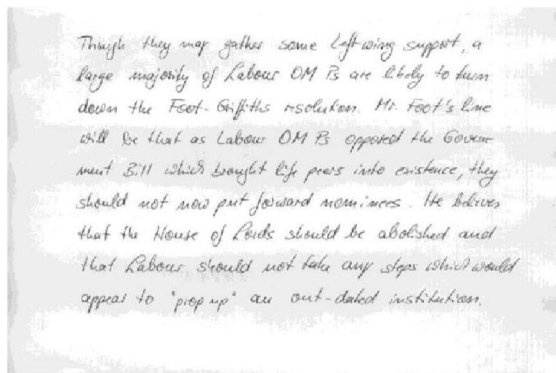 Though they may gather some Left wing support, a
large majority of Labour OM Ps are likely to turn
down the Foot-Griffiths resolution. Mr. Foot's line
will be that as Labour OM Ps opposed the Govern
ment Bill which brought life peers into existence, they
should not now put forward nominees. He believes
that the House of Lords should be abolished and
that Labour should not take any steps which would
appear to "prop up" an out-dated institution.